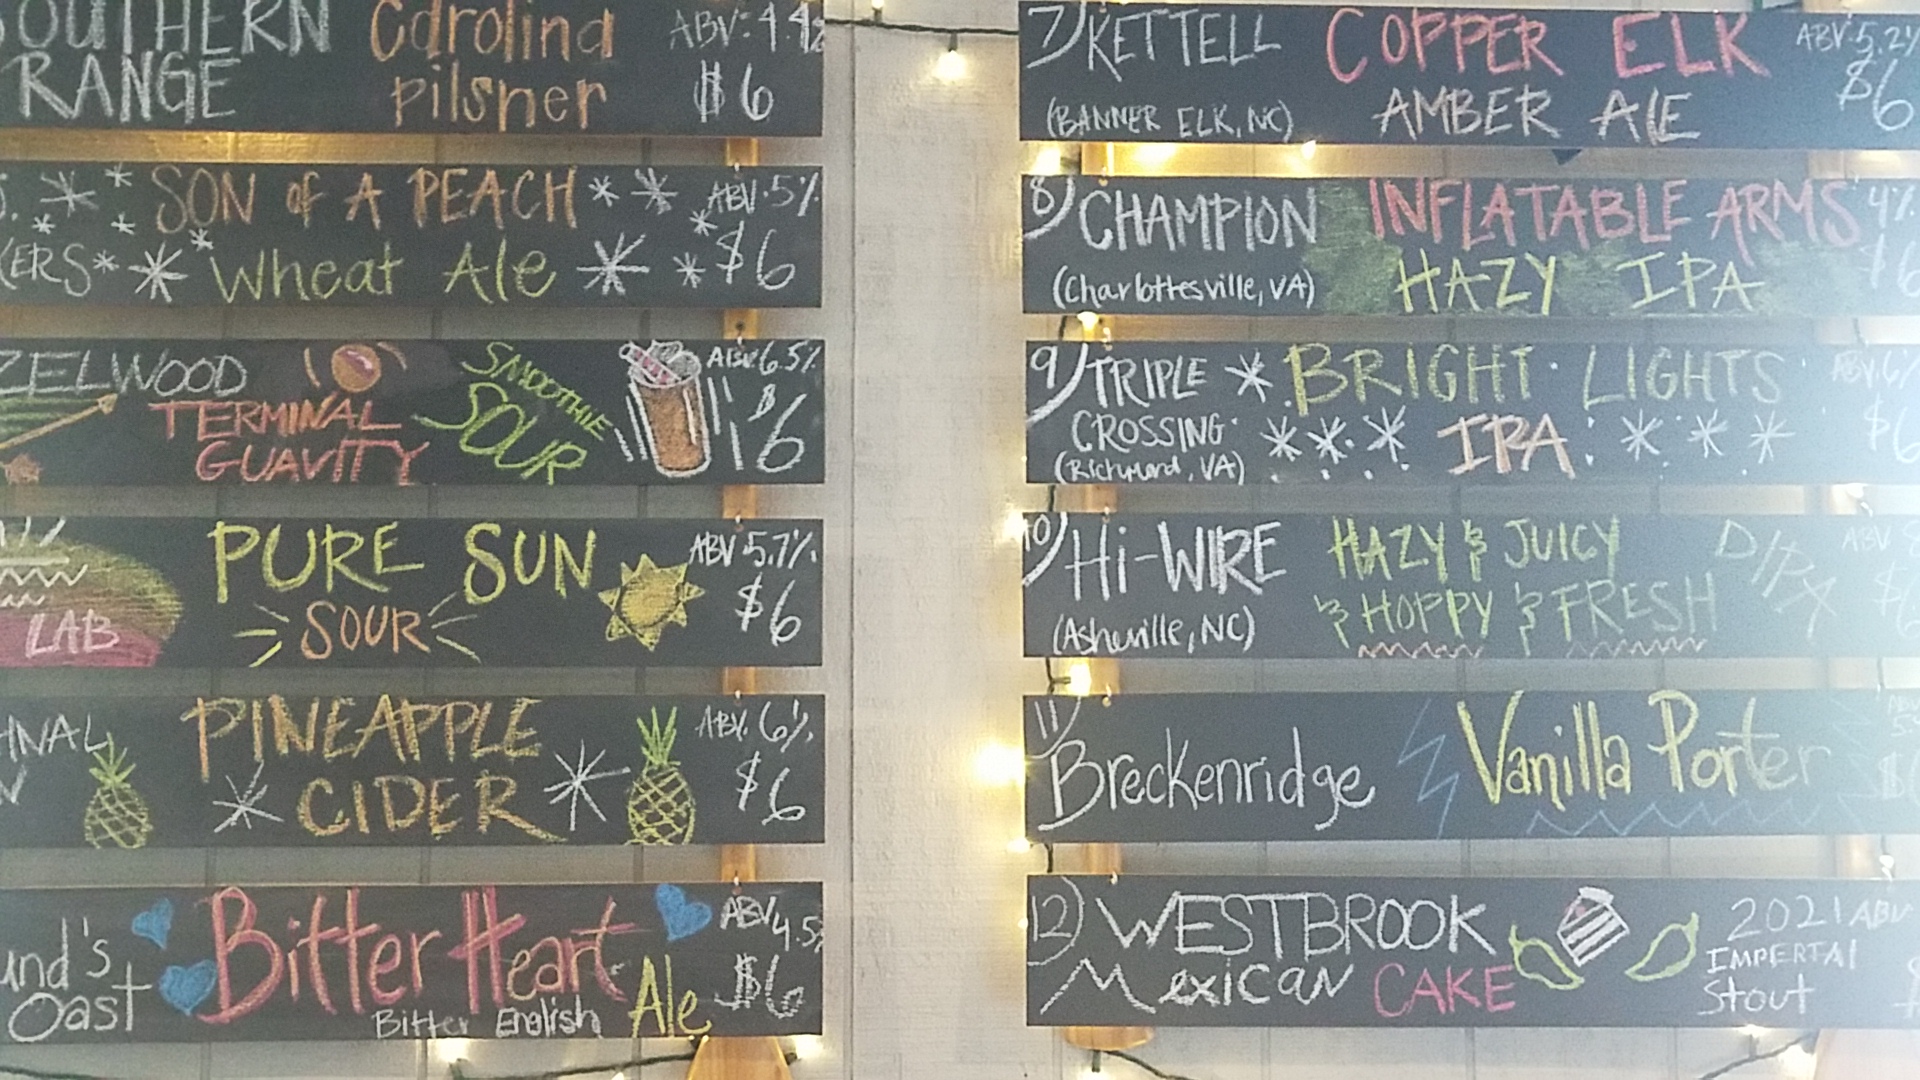 SOUTHERN Carolina ABV: 4.4%
RANGE pilsner $6
SON of A PEACH ABV. 5%
Wheat Ale $6
TERMINAL SMOOTHIE ABV. 6.5%
GUAVITY SOUR $6
PURE SUN ABV 5.7%
LAB SOUR $6
PINEAPPLE ABV. 6%
CIDER $6
Bitter Heart ABV 4.5%
Bitter English Ale $6
7) KETTELL COPPER ELK ABV. 5.2%
(BANNER ELK, NC) AMBER ALE $6
8) CHAMPION INFLATABLE ARMS 4%
(Charlottesville, VA) HAZY IPA $6
9) TRIPLE BRIGHT LIGHTS ABV. 6%
CROSSING IPA $6
(Richmond, VA)
10) Hi-WIRE HAZY & JUICY DIPA ABV 8
(Asheville, NC) & HOPPY & FRESH
11)
Breckenridge Vanilla Porter
12) WESTBROOK 2021 ABV
Mexican CAKE IMPERIAL
Stout